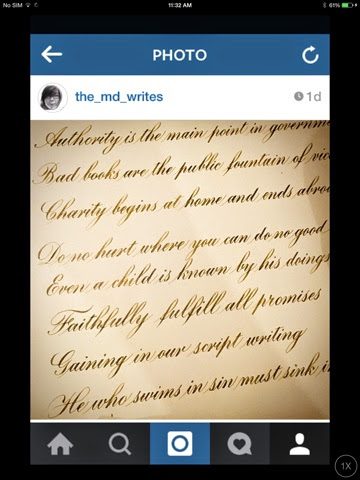 No SIM 11:32 AM 61%
PHOTO
the_md_writes 1d
Authority is the main point in governm
Bad books are the public fountain of vic
Charity begins at home and ends abroa
Do no hurt where you can do no good
Even a child is known by his doings
Faithfully fulfill all promises
Gaining in our script writing
He who swims in sin must sink in
1X